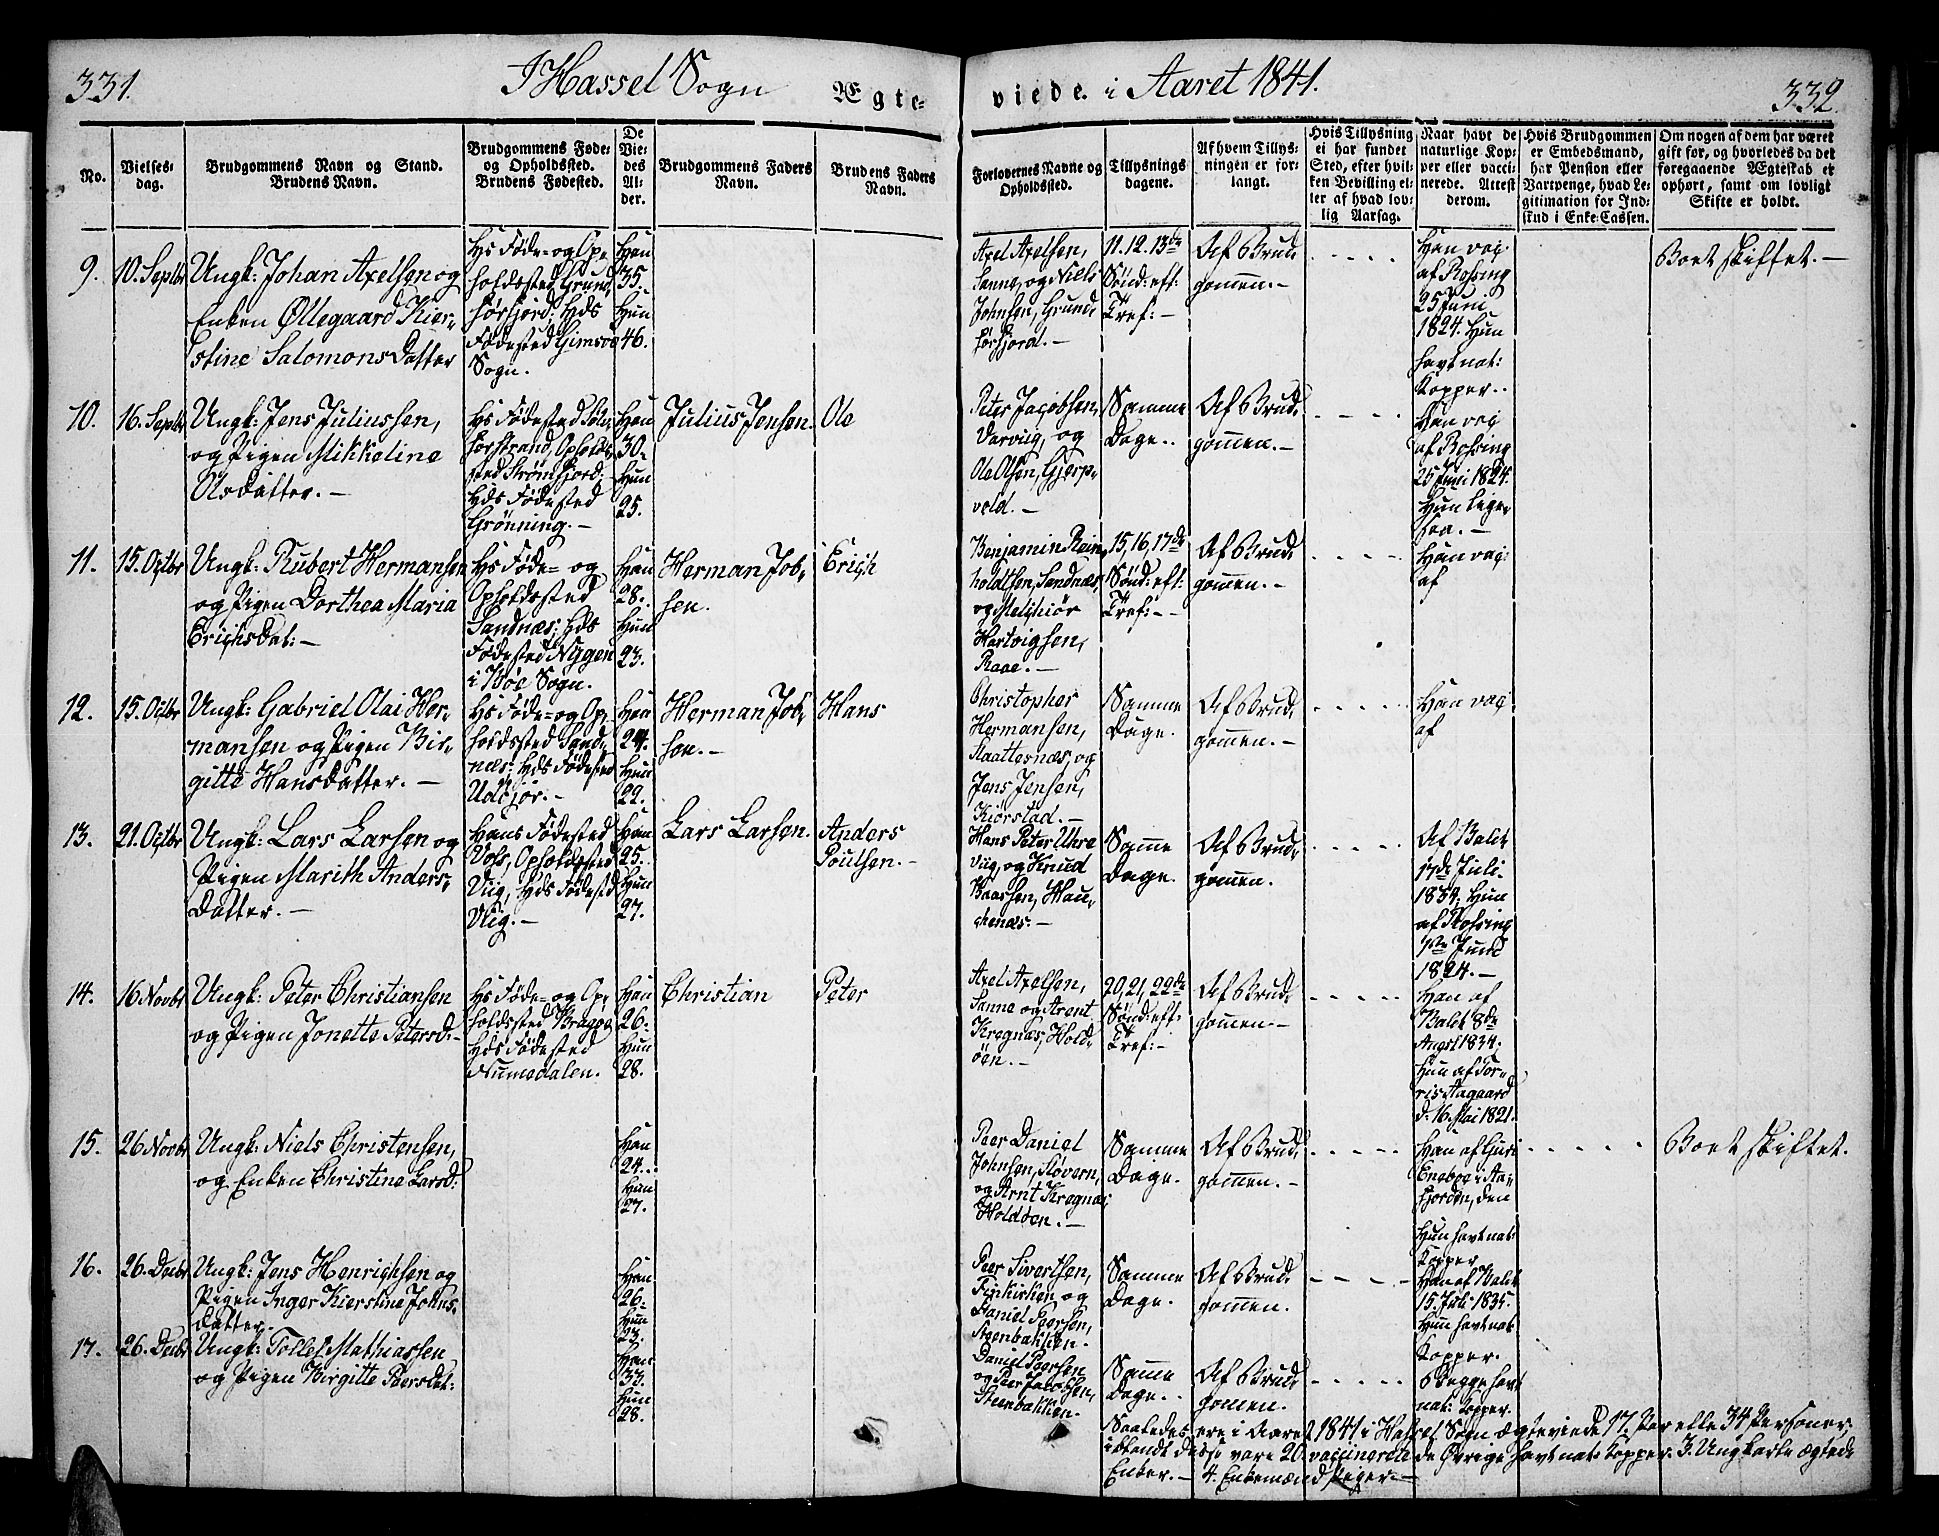 331.
I Hassel Sogn
Ægte-
viede i Aaret 1841.
332.
No.
Vielses-
dag.
Brudgommens Navn og Stand.
Brudens Navn.
Brudgommens Føde-
og Opholdssted.
Brudens Fødested.
De
Vie-
des
Al-
der.
Brudgommens Faders
Navn.
Brudens Faders
Navn.
Forlovernes Navne og
Opholdssted.
Tillysnings
dagene.
Af hvem Tillys-
ningen er for-
langt.
Hvis Tillysning
ei har fundet
Sted, efter hvil-
ken Bevilling el-
ler af hvad lov-
lig Aarsag.
Naar havt de
naturlige Kop-
per eller vacci-
nerede. Attest
derom.
Hvis Brudgommen
er Embedsmand,
har Pension eller
Vartpenge, hvad Le-
gitimation for Ind-
skud i Enke-Cassen.
Om nogen af dem har været
gift før, og hvorledes da det
foregaaende Ægteskab er
ophørt, samt om lovligt
Skifte er holdt.
9.
10. Septbr
Ungk: Johan Axelsen og
Enken Øllegaard Kier-
stine Salomons Datter
Hs Føde- og Op-
holdssted Grund-
førfjord; Hds
Fødested Gimsøe
Sogn.
Han
35.
Hun
46.
Axel Axelsen,
Sanne, og Niels
Johnsen, Grund-
førfjord. -
11. 12. 13de
Sönd: eft:
Tref: -
Af Brud-
gommen. -
Han vac:
af Rosing
25 Juni
1824. Hun
havt nat:
Kopper..
Boet skiftet. -
10.
16. Septbr
Ungk: Jens Juliussen,
og Pigen Mikkeline
Olsdatter. -
Hs Fødested
Opholds-
sted Strømfjord;
Hds Fødested
Grönning. -
Han
30-
Hun
25.
Julius Jensen.
Ole
Peter Jacobsen,
og
Ole Olsen,
vold. -
Samme
Dage..
Af Brud-
gommen. -
Han vac
af Rosing
25 Juni 1824.
Hun lige-
saa. -
11.
15. Octbr
Ungk: Rubert Hermansen
og Pigen Dorthea Maria
Erichsdat: -
Hs Føde- og
Opholdssted
Sandnæs; Hds
Fødested Nyggen
i Bøe Sogn.
Han
28.
Hun
23.
Herman Job-
sen.
Erich
Benjamin Rein-
holdtsen, Sandnæs,
og Melchiör
Hartvigsen,
Raae. -
15, 16, 17de
Sönd: eft:
Tref: -
Af Brud-
gommen. -
Han vac:
af
12.
15. Octbr
Ungk: Gabriel Olai Her-
mansen og Pigen Bir-
gitte Hansdatter. -
Hs Føde- og Op-
holdssted Sand-
næs; Hds Fødested
Han
24.
Hun
22.
Herman Job-
sen. -
Hans
Christopher
Hermansen,
og
Jens Jensen,
Kiörstad. -
Samme
Dage.
Af Brud-
gommen. -
Han vac
af
13.
21. Octbr
Ungk: Lars Larsen og
Pigen Marith Anders-
datter. -
Hans Fødested
Opholdssted
Viig, Hds Fødested
Han
25.
Hun
27.
Lars Larsen.
Anders
Poulsen. -
Hans Peter Uhre
Viig, og Knud
Baarsen, Hau-
chenæs. -
Samme
Dage.
Af Brud-
gommen.
Af Baldt
17de Juli
1834; Hun
af Rosing
1824. -
14.
16 Novbr
Ungk: Peter Christiansen
og Pigen Jonette Petersd: -
Hs Føde- og Op-
holdssted
Hds Fødested
Numedalen.
Han
26-
Hun
28.
Christian
Peter
Axel Axelsen,
Sanne og Arent
Kregnæs, Hold-
öen. -
20, 21, 22de
Sönd: eft:
Tref: -
Af Brud-
gommen. -
Han af
Baldt 8de
Augst 1834.
Hun af Tor-
ris Aagaard
d: 16 Mai 1821.
15.
26 Novbr
Ungk: Niels Christensen,
og Enken Christine Larsd:
Han
24..
Hun
27.
Peer Daniel
Johnsen,
og Arnt Kregnæs
Holdöen. -
Samme
Dage.
Af Brud-
gommen. -
Han af
den
Hun havt nat:
Kopper
Boet skiftet.
16.
26. Decbr
Ungk: Jens Henrichsen og
Pigen Inger Kierstine Johns-
datter.
Han
26-
Hun
23.
Peer Sivertsen,
og
Daniel Peersen,
Steenbakken.
Samme
Dage.
Af Brud-
gommen.
Han af Baldt
15. Juli 1835.
Hun havt nat:
Kopper.
17.
26. Decbr
Ungk: Tollef Mathiassen
og Pigen Birgitte Peersdat:
Han
33.
Hun
28.
Daniel Peersen
og Peer Jacobsen,
Steenbakken.
Samme
Dage.
Af Brud-
gommen.
Begge havt
nat: Kopper.
Saaledes ere i Aaret 1841 i Hassel Sogn ægteviede 17. Par eller 34 Personer,
iblandt disse vare 20. vaccinerede, de Øvrige havt nat: Kopper. 3. Ungkarle ægtede
Enker. - 4. Enkemænd Piger. -